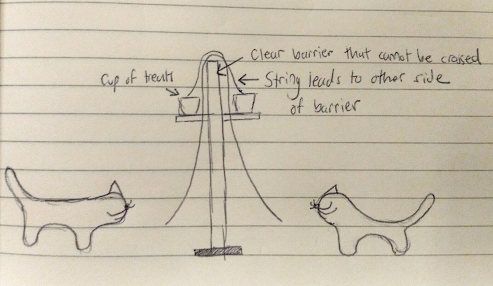 Clear barrier that cannot be crossed
Cup of treats
String leads to other side
of barrier